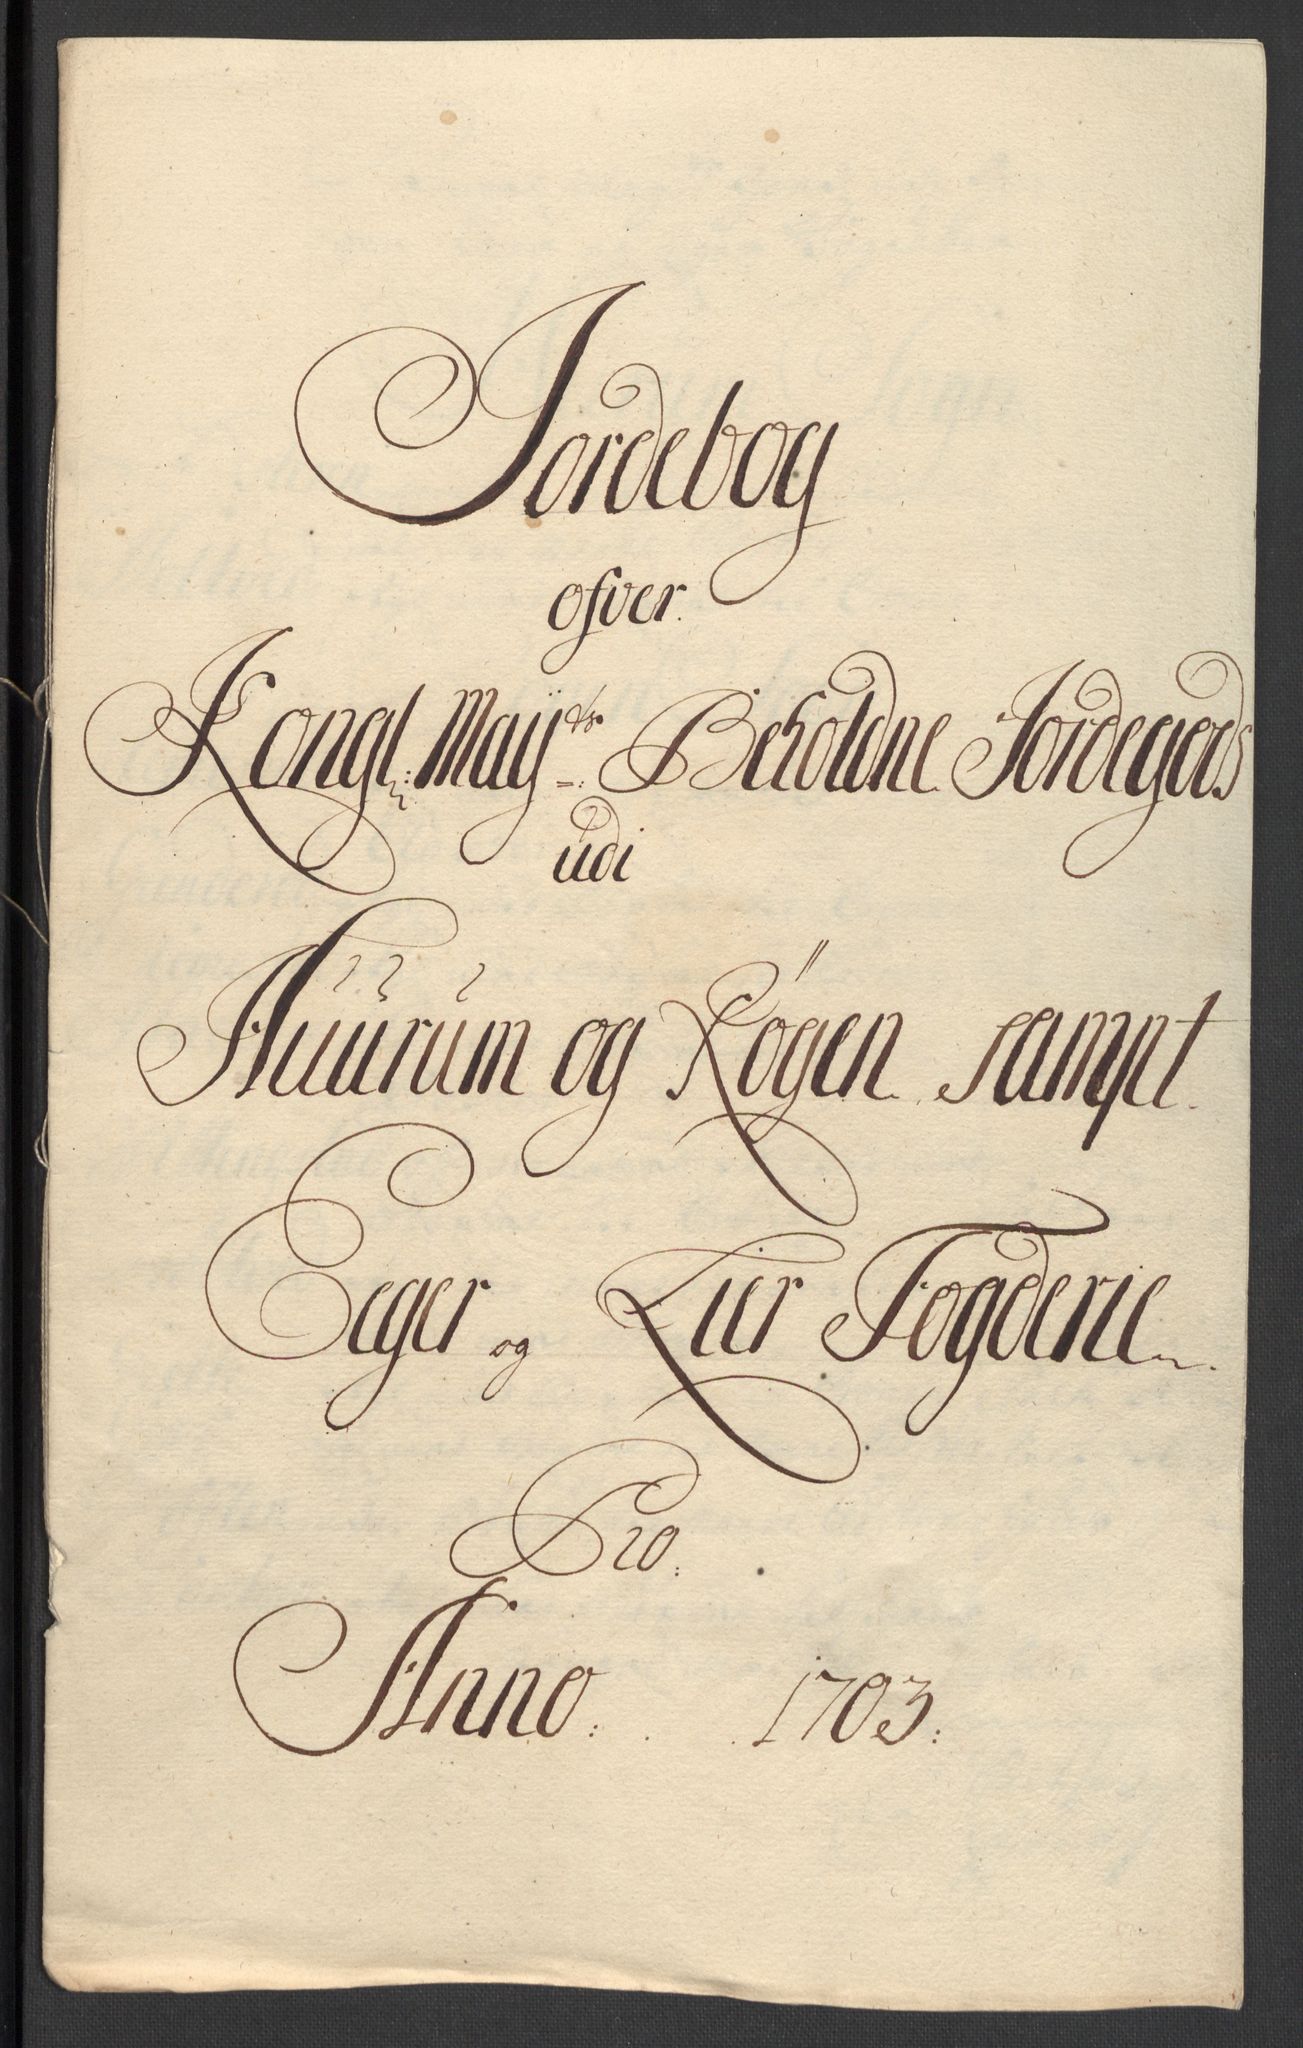 Jordebog
ofver
Kongl: Maÿts Beholdne Jordegods
udi
Huurum og Røgen sampt
Eeger og Lier Fogderie
Pro:
Anno: 1703: